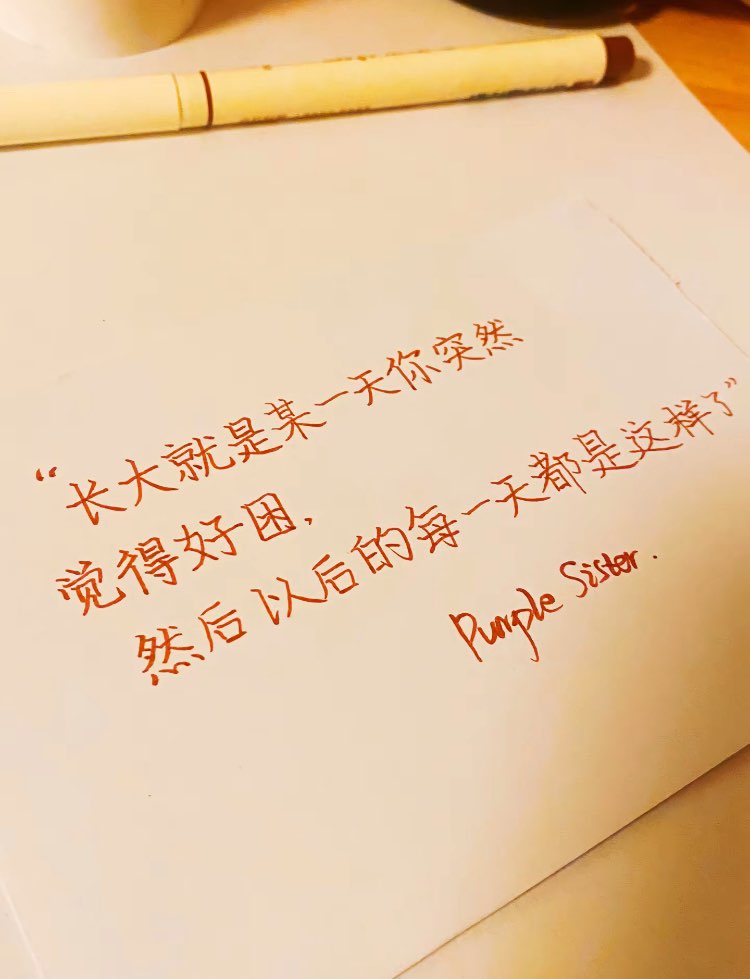 “长大就是某一天你突然
觉得好困，
然后以后的每一天都是这样了”
Purple Sister.